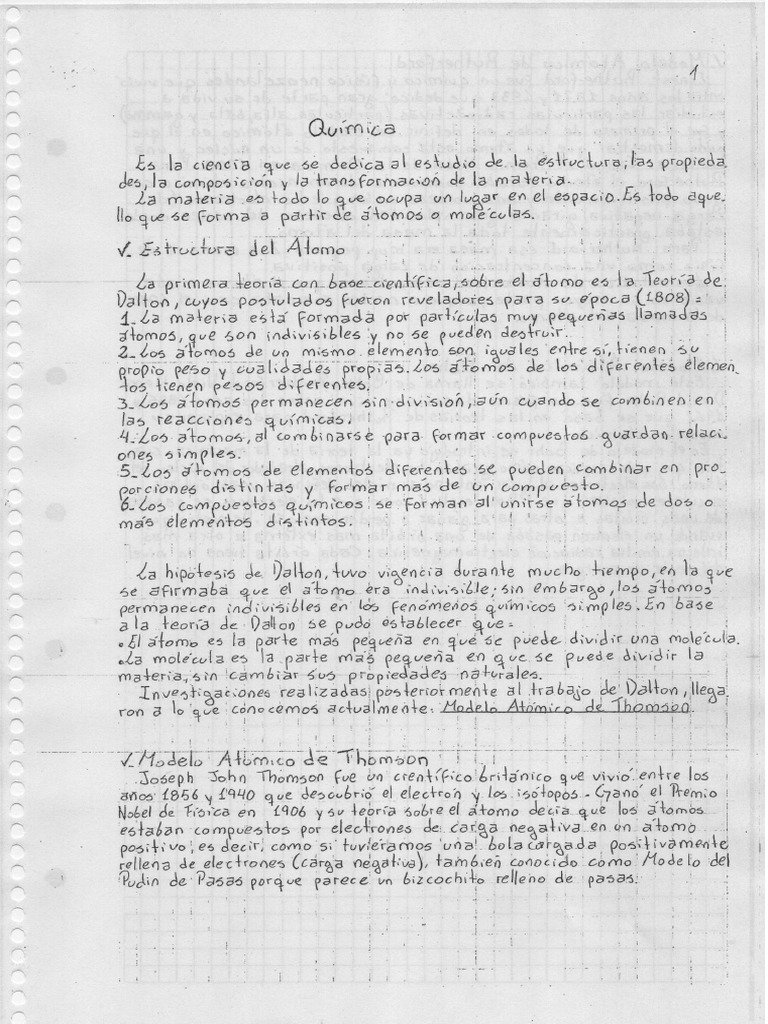 1
Química
Es la ciencia que se dedica al estudio de la estructura, las propieda
des, la composición y la transformación de la materia.
La materia es todo lo que ocupa un lugar en el espacio. Es todo aque.
llo que se forma a partir de átomos o moléculas.
√. Estructura del Átomo
La primera teoría con base científica, sobre el átomo es la Teoría de
Dalton, cuyos postulados fueron reveladores para su época (1808) =
1. La materia está formada por partículas muy pequeñas llamadas
átomos, que son indivisibles y no se pueden destruir.
2. Los átomos de un mismo elemento son iguales entre sí, tienen su
propio peso y cualidades propias. Los átomos de los diferentes elemen
tos tienen pesos diferentes.
3. Los átomos permanecen sin división, aún cuando se combinen en
las reacciones químicas.
4. Los átomos, al combinarse para formar compuestos guardan relaci.
ones simples.
5. Los átomos de elementos diferentes se pueden combinar en pro
porciones distintas y formar más de un compuesto.
6. Los compuestos químicos se forman al unirse átomos de dos o
más elementos distintos.
La hipótesis de Dalton, tuvo vigencia durante mucho tiempo, en la que
se afirmaba que el átomo era indivisible; sin embargo, los átomos
permanecen indivisibles en los fenómenos químicos simples. En base
a la teoría de Dalton se pudo establecer que =
• El átomo es la parte más pequeña en que se puede dividir una molécula.
• La molécula es la parte más pequeña en que se puede dividir la
materia, sin cambiar sus propiedades naturales.
Investigaciones realizadas posteriormente al trabajo de Dalton, llega
ron a lo que conocemos actualmente: Modelo Atómico de Thomson.
√. Modelo Atómico de Thomson
Joseph John Thomson fue un científico británico que vivió entre los
años 1856 y 1940 que descubrió el electrón y los isótopos. Ganó el Premio
Nobel de Física en 1906 y su teoría sobre el átomo decía que los átomos
estaban compuestos por electrones de carga negativa en un átomo
positivo; es decir, como si tuvieramos una bola cargada positivamente
rellena de electrones (carga negativa), también conocido como Modelo del
Pudin de Pasas porque parece un bizcochito relleno de pasas.